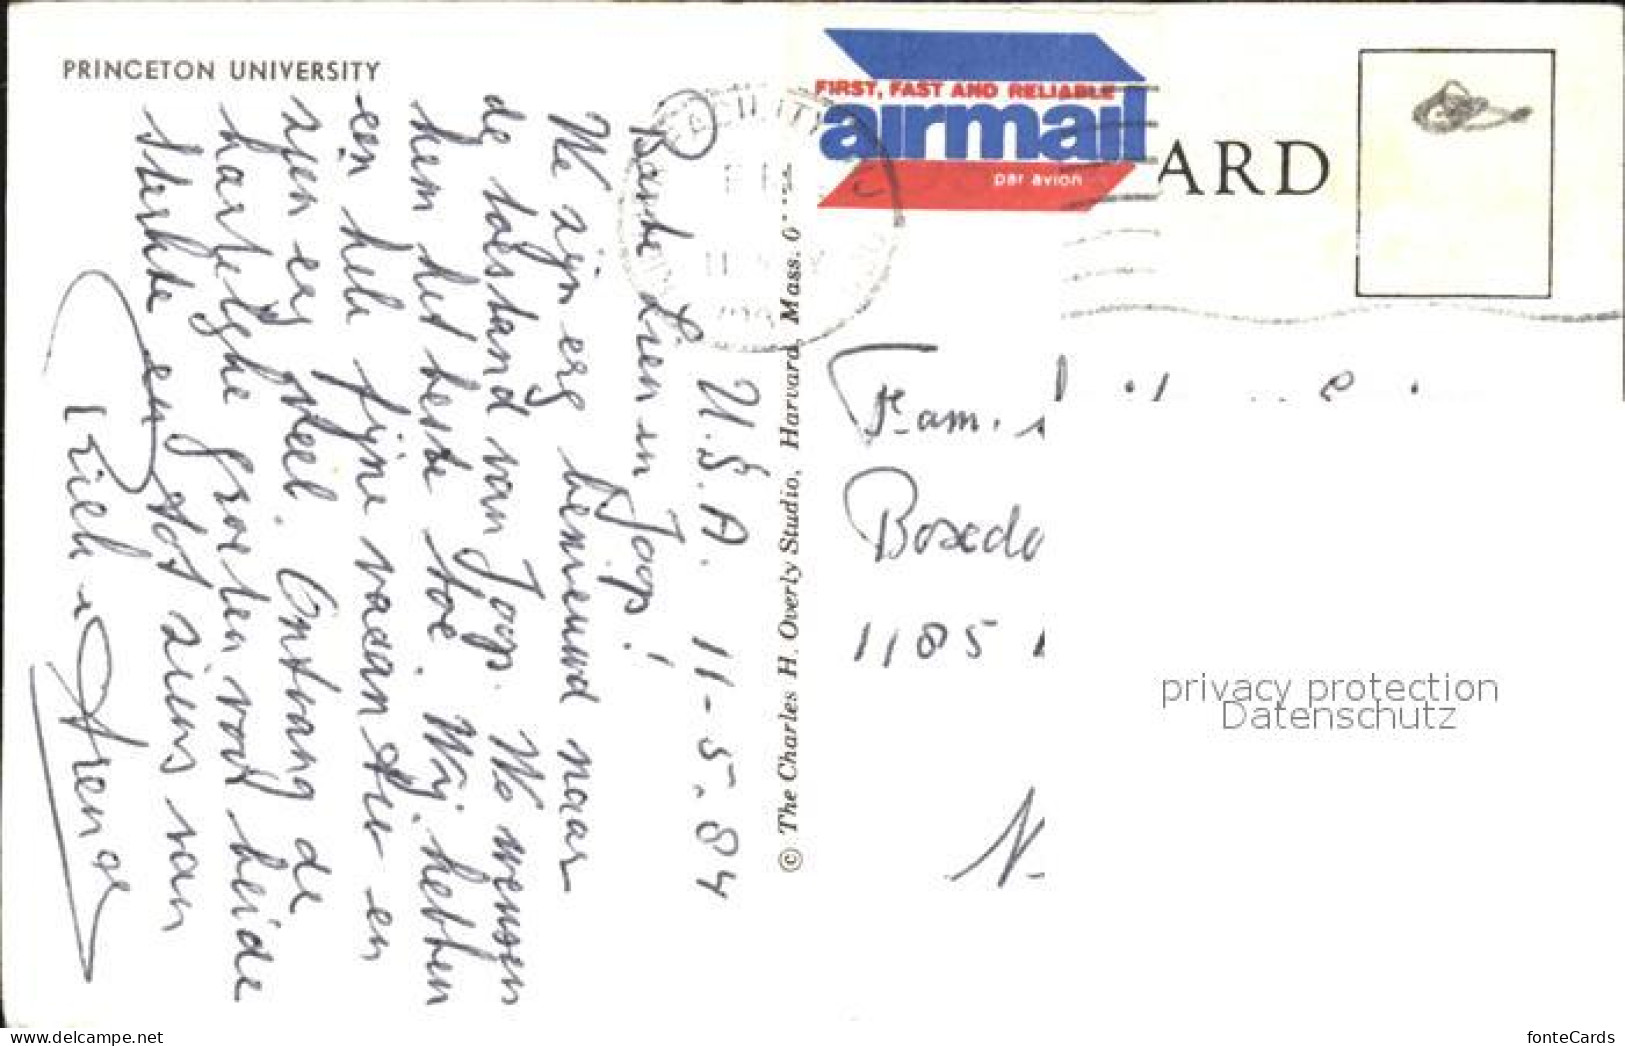 PRINCETON UNIVERSITY
U.S.A. 11-5-84
Beste Lien en Joop!
We zijn erg benieuwd naar
de toestand van Joop. We wensen
hem het beste toe. Wij hebben
een hele fijne vacantie en
zien erg veel. Ontvang de
hartelijke groeten voor beide
sterkte en tot ziens van
© The Charles H. Overly Studio, Harvard, Mass.
FIRST, FAST AND RELIABLE
airmail
par avion
ARD
Fam.
1185
privacy protection
Datenschutz
www.delcampe.net
fonteCards